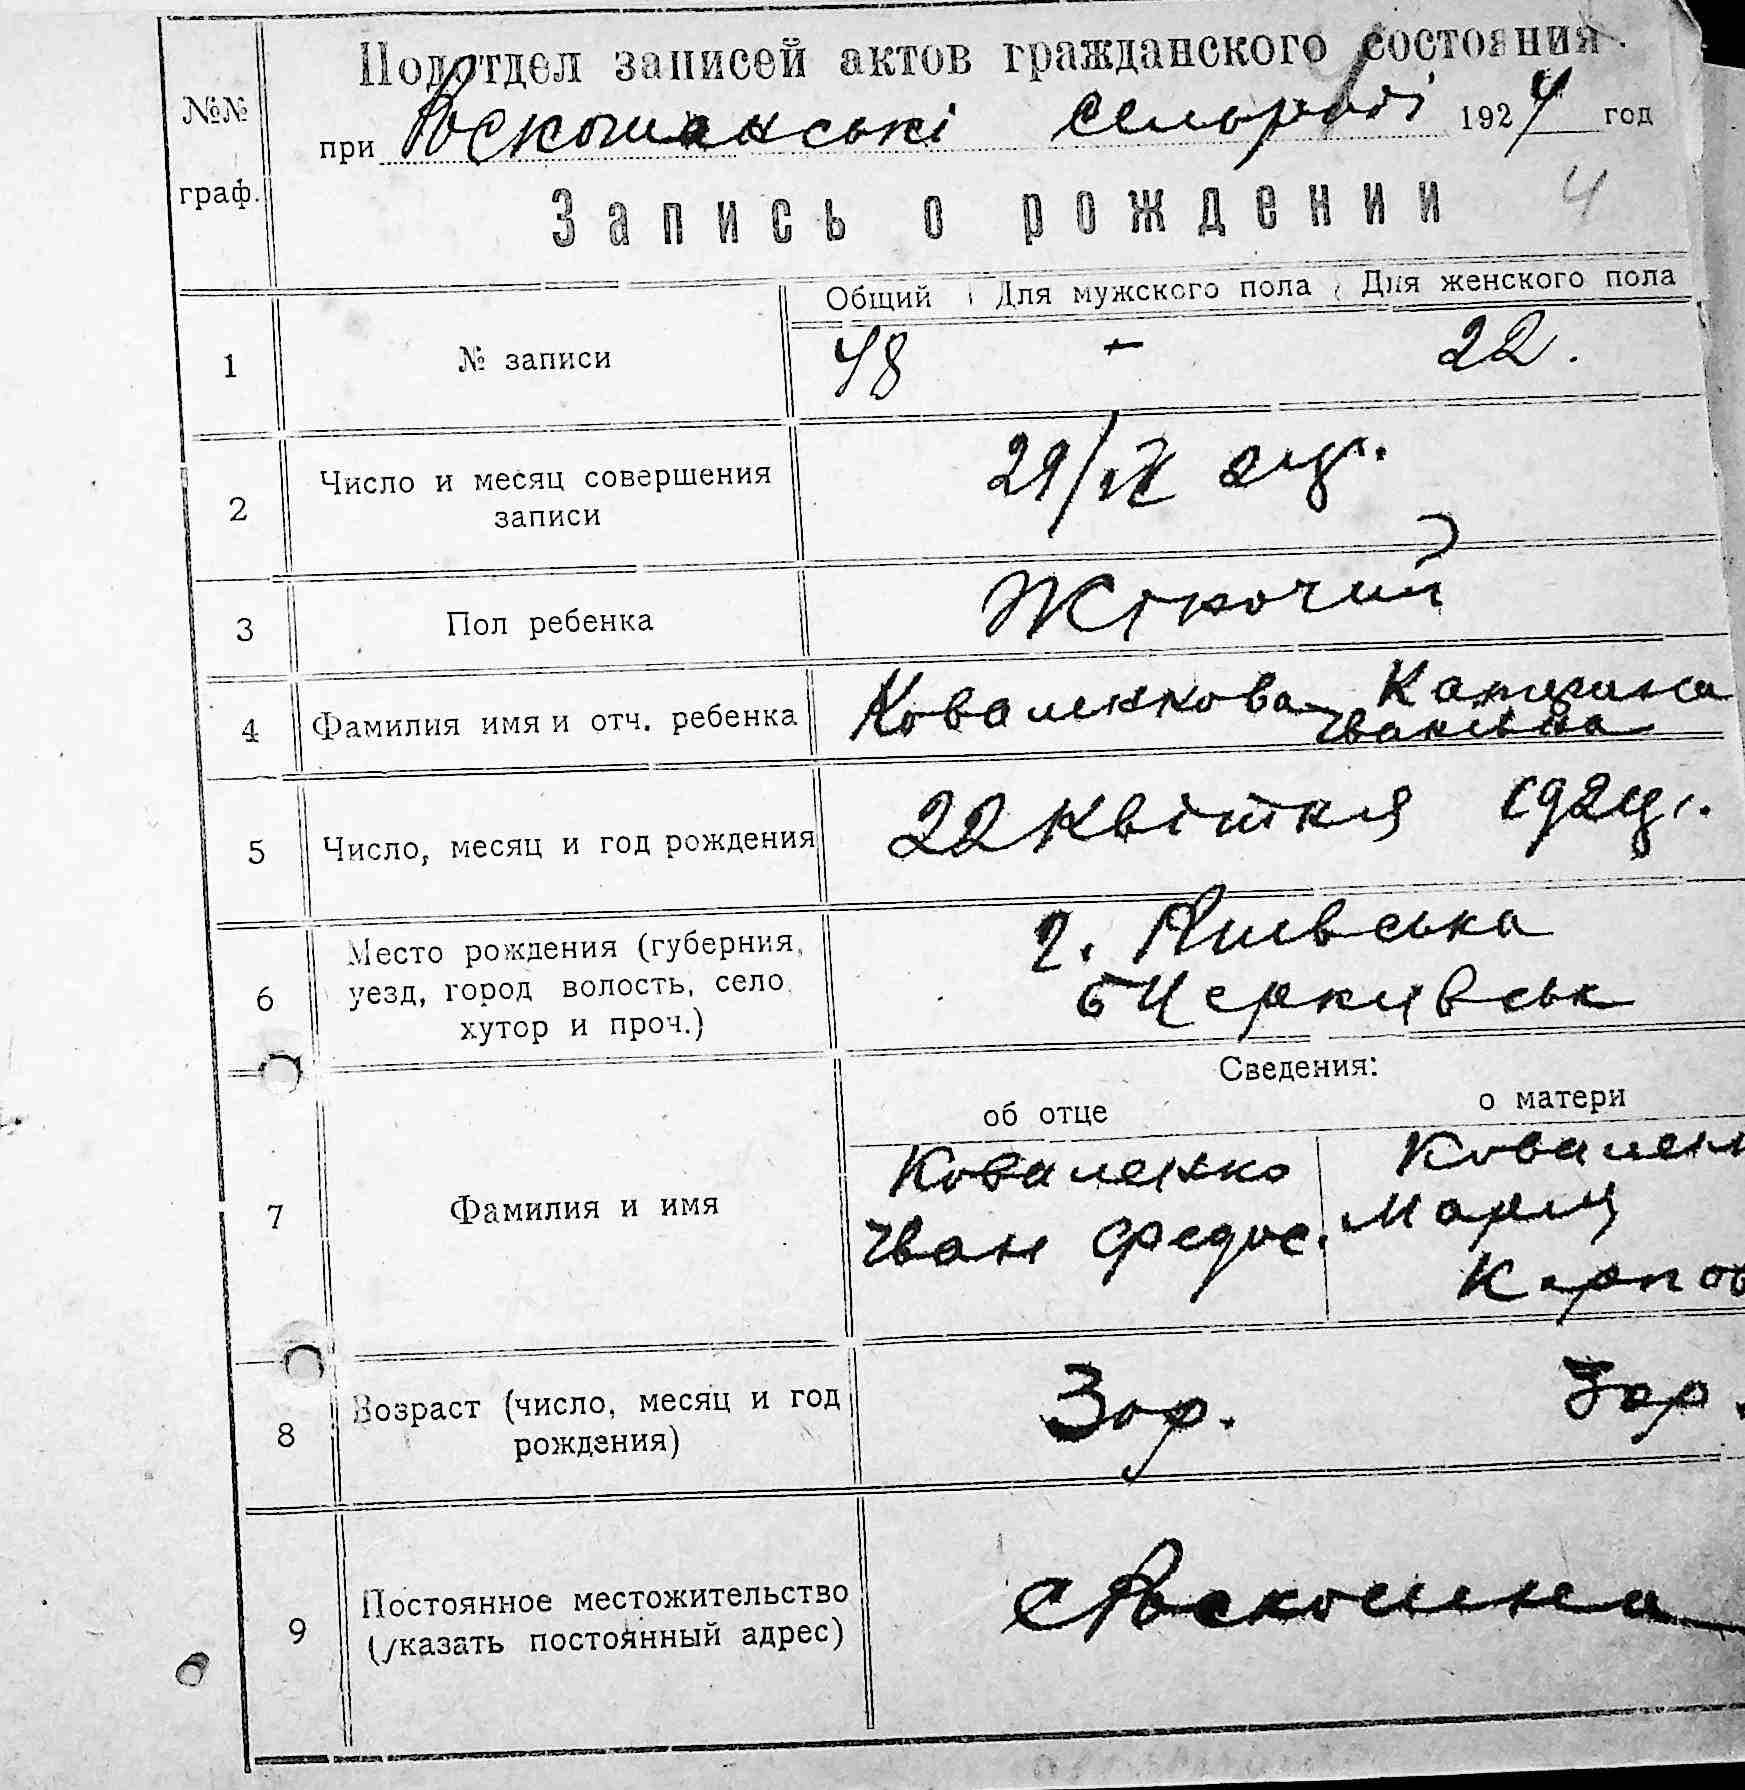 Подотдел записей актов гражданского состояния.
№№ граф.
при Роскошанські сельраді 1924 год
Запись о рождении
4
Общий Для мужского пола Для женского пола
1 № записи 48 – 22.
2 Число и месяц совершения записи 29/IV 24р.
3 Пол ребенка Жіночий
4 Фамилия имя и отч. ребенка Коваленкова Катерина Іванівна
5 Число, месяц и год рождения 22 Квітня 1924р.
6 Место рождения (губерния, уезд, город волость, село хутор и проч.) г. Київська
БЦерківськ
Сведения:
об отце о матери
7 Фамилия и имя Коваленко Ковален
Іван Федос. Марія
Карпов
8 Возраст (число, месяц и год рождения) 30р. 30р.
9 Постоянное местожительство (указать постоянный адрес) с Роскошна